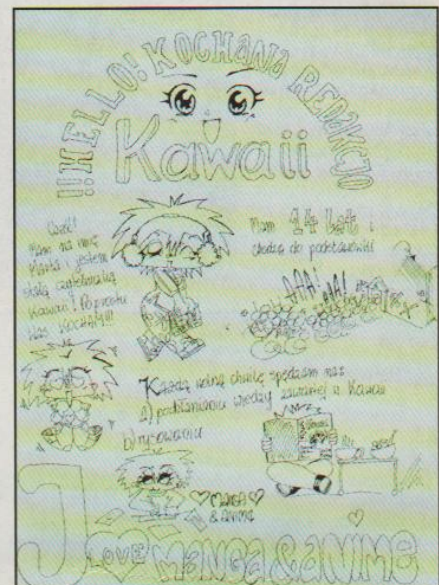 !!HELLO! KOCHANA REDAKCJO
Kawaii
Cześć!
Mam na imię
Marta i jestem
stałą czytelniczką
Kawaii! Po prostu
Was KOCHAM!!!
Mam 14 lat i
chodzę do podstawówki
AAA! AA!
Każdą wolną chwilę spędzam na:
a) pochłanianiu wiedzy zawartej w Kawaii
b) rysowaniu
MANGA
& ANIME
I LOVE MANGA & ANIME